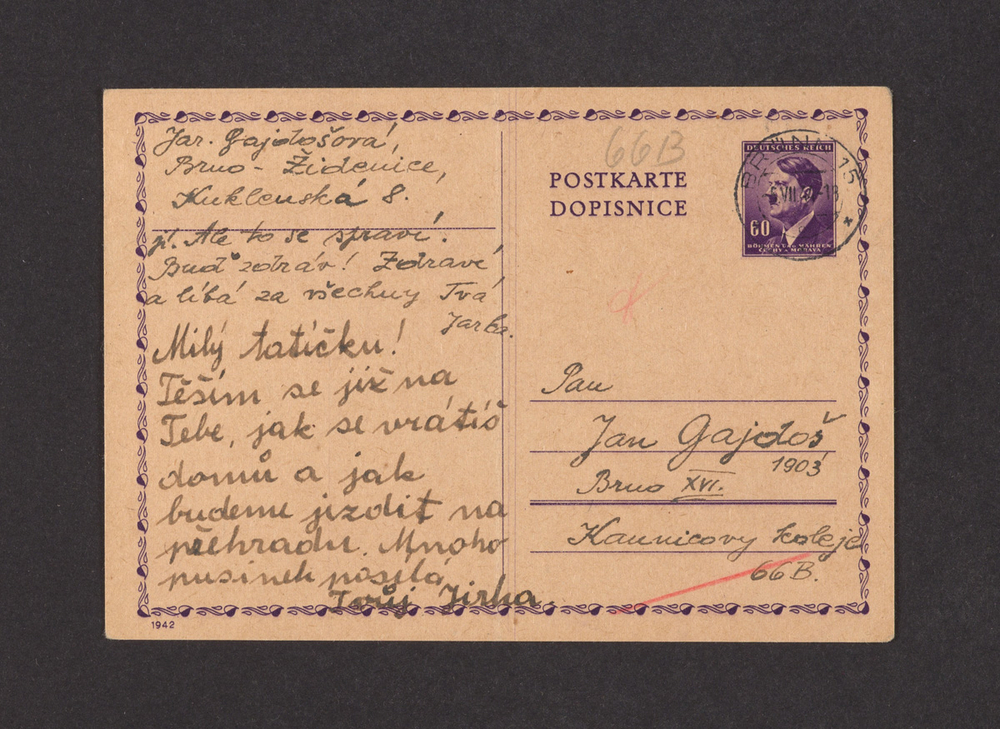 Jar. Gajdošová,
Brno - Židenice,
Kuklenská 8.
Ale to se spraví!
Buď zdráv! Zdraví
a líbá za všechny Tvá
Jarka.
Milý tatíčku!
Těším se již na
Tebe, jak se vrátíš
domů a jak
budeme jizdit na
přehradu. Mnoho
pusinek posílá
Tvůj Jirka.
1942
66B
POSTKARTE
DOPISNICE
DEUTSCHES REICH
60
BÖHMEN u. MÄHREN
ČECHY a MORAVA
BRÜNN 15
VII
Pan
Jan Gajdoš
1903
Brno XVI.
Kaunicovy koleje
66B.